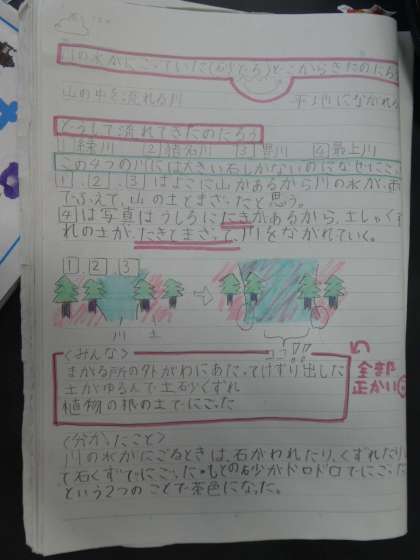 川の水がにごっていた(すなどろ)どこからきたのだろ
山の中を流れる川
平地にながれる
どうして流れてきたのだろう
1 緑川 2 3 豊川 4 最上川
この4つの川には大きい石しかないのになぜにご
1.2.3はよこに山があるから川の水がふ
てふえて、山の土とまざったと思う。
4は写真はうしろにたきがあるから、土しゃくず
れの土が、たきとまざって、川をながれていく。
1 2 3
川 土
<みんな>
まがる所の外がわにあたってけずり出した
土がゆるんで土砂くずれ
植物の根の土でにごった
全部正かい
<分かったこと>
川の水がにごるときは、石がわれたり、くずれたり
て石くずでにごった・もとの砂がドロドロでにごった
という2つのことで茶色になった。